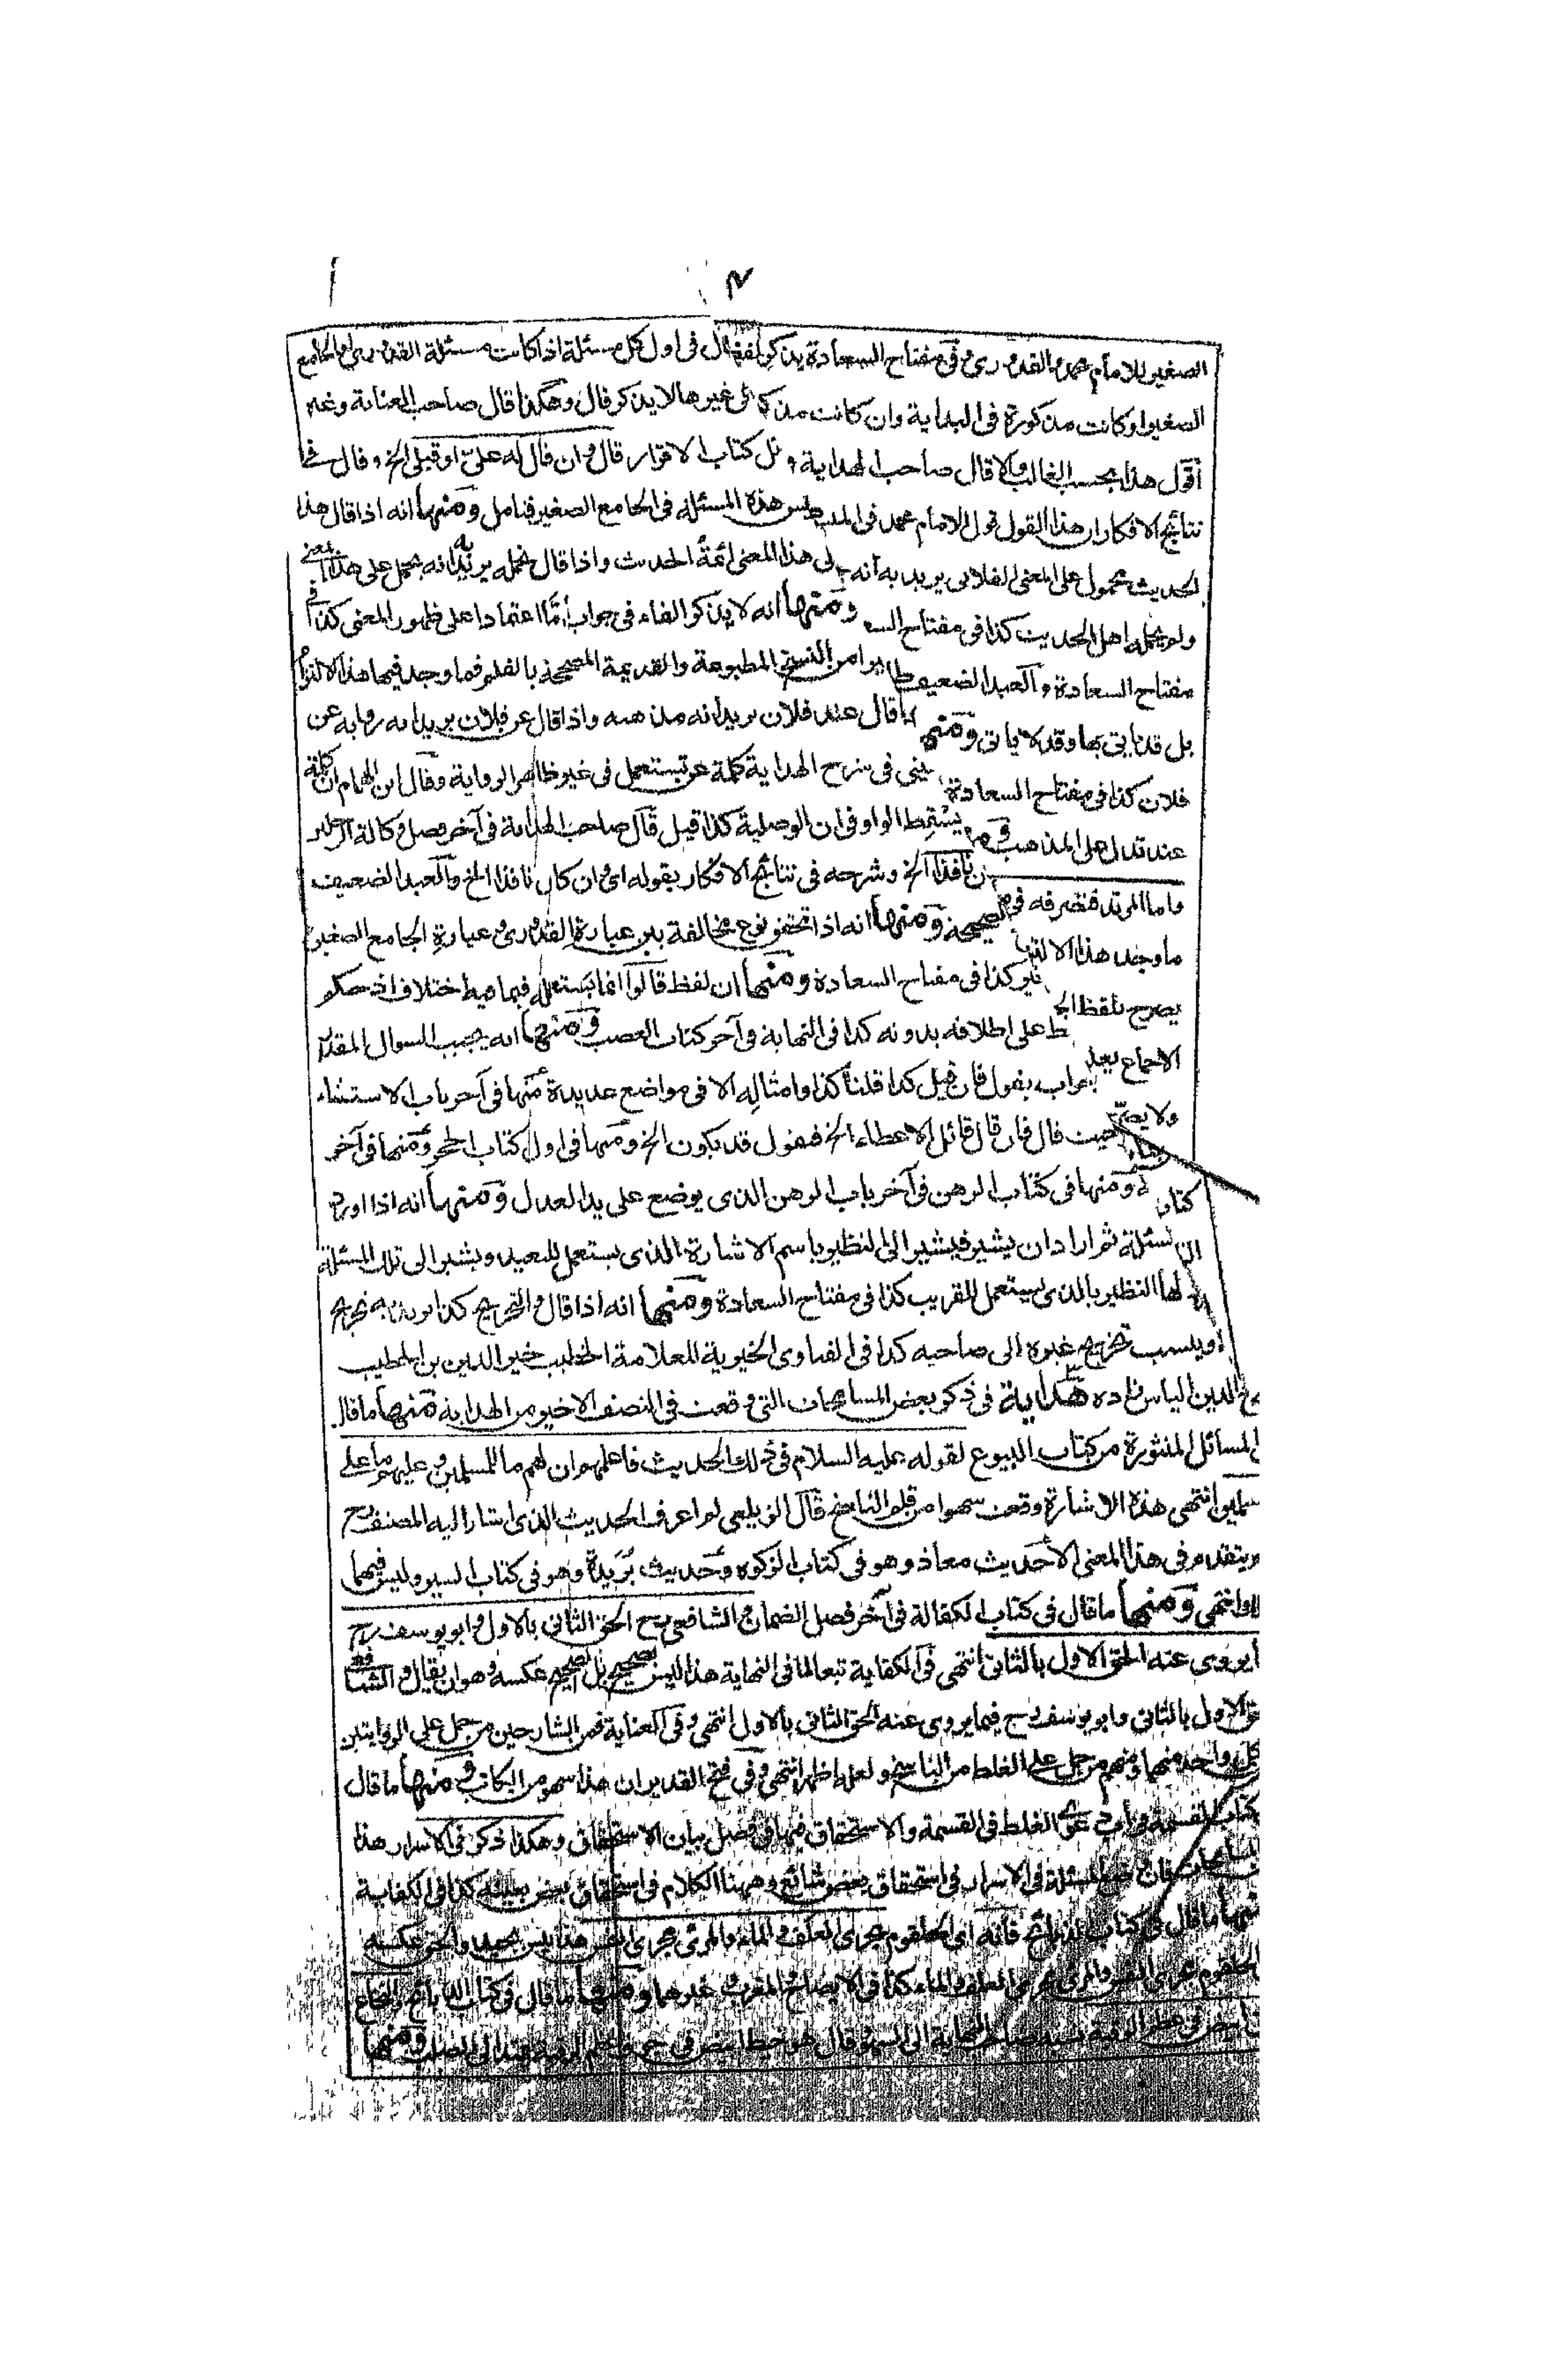 ٢
الصغير للامام محمد والقدوري وفي مفتاح السعادة يذكر لفظ قال في اول كل مسئلة اذا كانت مسئلة القدوري او الجامع
الصغير او كانت مذكورة في البداية وان كانت مذكورة في غيرها لا يذكر قال وهكذا قال صاحب العناية وغيره
أقول هذا بحسب الغالب والا قال صاحب الهداية في كتاب الاقرار قال وان قال له علي او قبلي الخ وقال في
نتائج الافكار ان هذا القول قول الامام محمد في المبسوط وليس هذه المسئلة في الجامع الصغير فتامل ومنها انه اذا قال هذا
الحديث محمول على المعنى الفلاني يريد به انه حمله على هذا المعنى ائمة الحديث واذا قال نحمله يريد به انه يحمل على هذا المعنى
ولم يحمله اهل الحديث كذا في مفتاح السعادة ومنها انه لا يذكر الفاء في جواب أمّا اعتمادا على ظهور المعنى كذا في
مفتاح السعادة والعبد الضعيف طالع كثيرا من النسخ المطبوعة والقديمة المصححة بالقلم فما وجد فيها هذا الالتزام
بل قد ياتي بها وقد لا ياتي ومنها اذا قال عند فلان يريد انه مذهبه واذا قال عن فلان يريد انه رواية عن
فلان كذا في مفتاح السعادة العيني في شرح الهداية كلمة عن تستعمل في غير ظاهر الرواية وقال ابن الهمام ان كلمة
عند تدل على المذهب ومنها يسقط الواو في ان الوصلية كذا قيل قال صاحب الهداية في آخر فصل وكالة
واما المرتد فتصرفه في نافذا الخ وشرحه في نتائج الافكار بقوله اي وان كان نافذا الخ والعبد الضعيف
ما وجد هذا الالتزام الصحيحة ومنها انه اذا تحقق نوع مخالفة بين عبارة القدوري وعبارة الجامع الصغير
يصرح بلفظ الجامع الصغير كذا في مفتاح السعادة ومنها ان لفظ قالوا انما يستعمله فيما فيه اختلاف
الاجماع بعد على اطلاقه بدونه كذا في النهاية في آخر كتاب الغصب ومنها انه يجيب السوال المقدر
ولا يصرح جواب بقول فان قيل كذا قلنا كذا وامثاله الا في مواضع عديدة منها في آخر باب الاستثناء
حيث قال فان قال قائل الاعطاء الخ فنقول قد يكون الخ ومنها في اول كتاب الحجر ومنها في آخر
كتاب ومنها في كتاب الرهن في آخر باب الرهن الذي يوضع على يد العدل ومنها انه اذا اورد
المسئلة ثم اراد ان يشير فيشير الى النظير باسم الاشارة الذي يستعمل للبعيد ويشير الى تلك المسئلة
لها النظير بالذي يستعمل للقريب كذا في مفتاح السعادة ومنها انه اذا قال والتخريج كذا يريد به تخريج
او ينسب تخريج غيره الى صاحبه كذا في الفتاوى الخيرية للعلامة الخطيب خير الدين بن الخطيب
الدين الياس زاده هداية في ذكر بعض المسامحات التي وقعت في النصف الاخير من الهداية منها ما قال
المسائل المنثورة من كتاب البيوع لقوله عليه السلام في ذلك الحديث فاعلمهم ان لهم ما للمسلمين وعليهم ما على
المسلمين انتهى هذه الاشارة وقعت سهوا من قلم الناسخ قال الزيلعي لم اعرف الحديث الذي اشار اليه المصنف رح
ولم يتقدم في هذا المعنى الا حديث معاذ وهو في كتاب الزكوة وحديث بُريدة وهو في كتاب السير وليس فيهما
انتهى ومنها ما قال في كتاب الكفالة في آخر فصل الضمان والشافعي رح الحق الثاني بالاول وابو يوسف رح
فيما يروى عنه الحق الاول بالثاني انتهى في الكفاية تبعا لما في النهاية هذا ليس بصحيح بل الصحيح عكسه وهو ان يقال والشافعي
الحق الاول بالثاني وابو يوسف رح فيما يروى عنه الحق الثاني بالاول انتهى وفي العناية فمن الشارحين من حمل على الروايتين
عن كل واحد منهما ومنهم من حمل على الغلط من الناسخ ولعله اظهر انتهى وفي فتح القدير ان هذا سهو من الكاتب ومنها ما قال
كتاب القسمة في باب دعوى الغلط في القسمة والاستحقاق فيها في فصل بيان الاستحقاق وهكذا ذكر في الاسرار هذا
فان وضع المسئلة في الاسرار في استحقاق بعض شائع وههنا الكلام في استحقاق بعض بعينه كذا في الكفاية
ومنها ما قال في كتاب الذبائح فانه اي الحلقوم مجرى العلف والماء والمرئ مجرى النفس هذا ليس بجيد والحق عكسه
الحلقوم مجرى النفس والمرئ مجرى العلف والماء كذا في الايضاح والمغرب وغيرهما ومنها ما قال في كتاب الذبائح والنخاع
ابيض في عظم الرقبة نسبه صاحب النهاية الى السهو وقال هو خيط ابيض في جوف عظم الرقبة يمتد الى الصلب ومنها